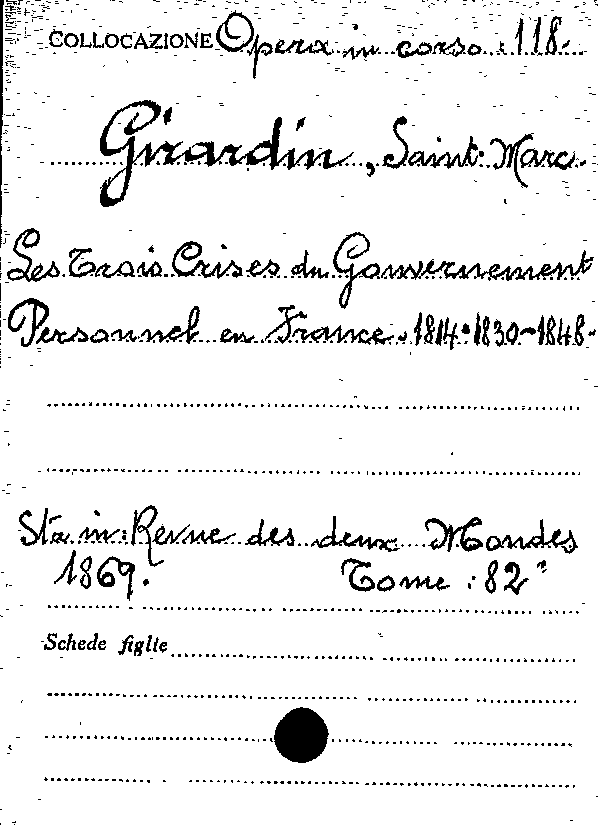 COLLOCAZIONE Opera in corso : 118.
Girardin, Saint-Marc.
Les Trois Crises du Gouvernement
Personnel en France. 1814-1830-1848.
Sta in: Revue des deux Mondes
1869. Tome : 82°
Schede figlie